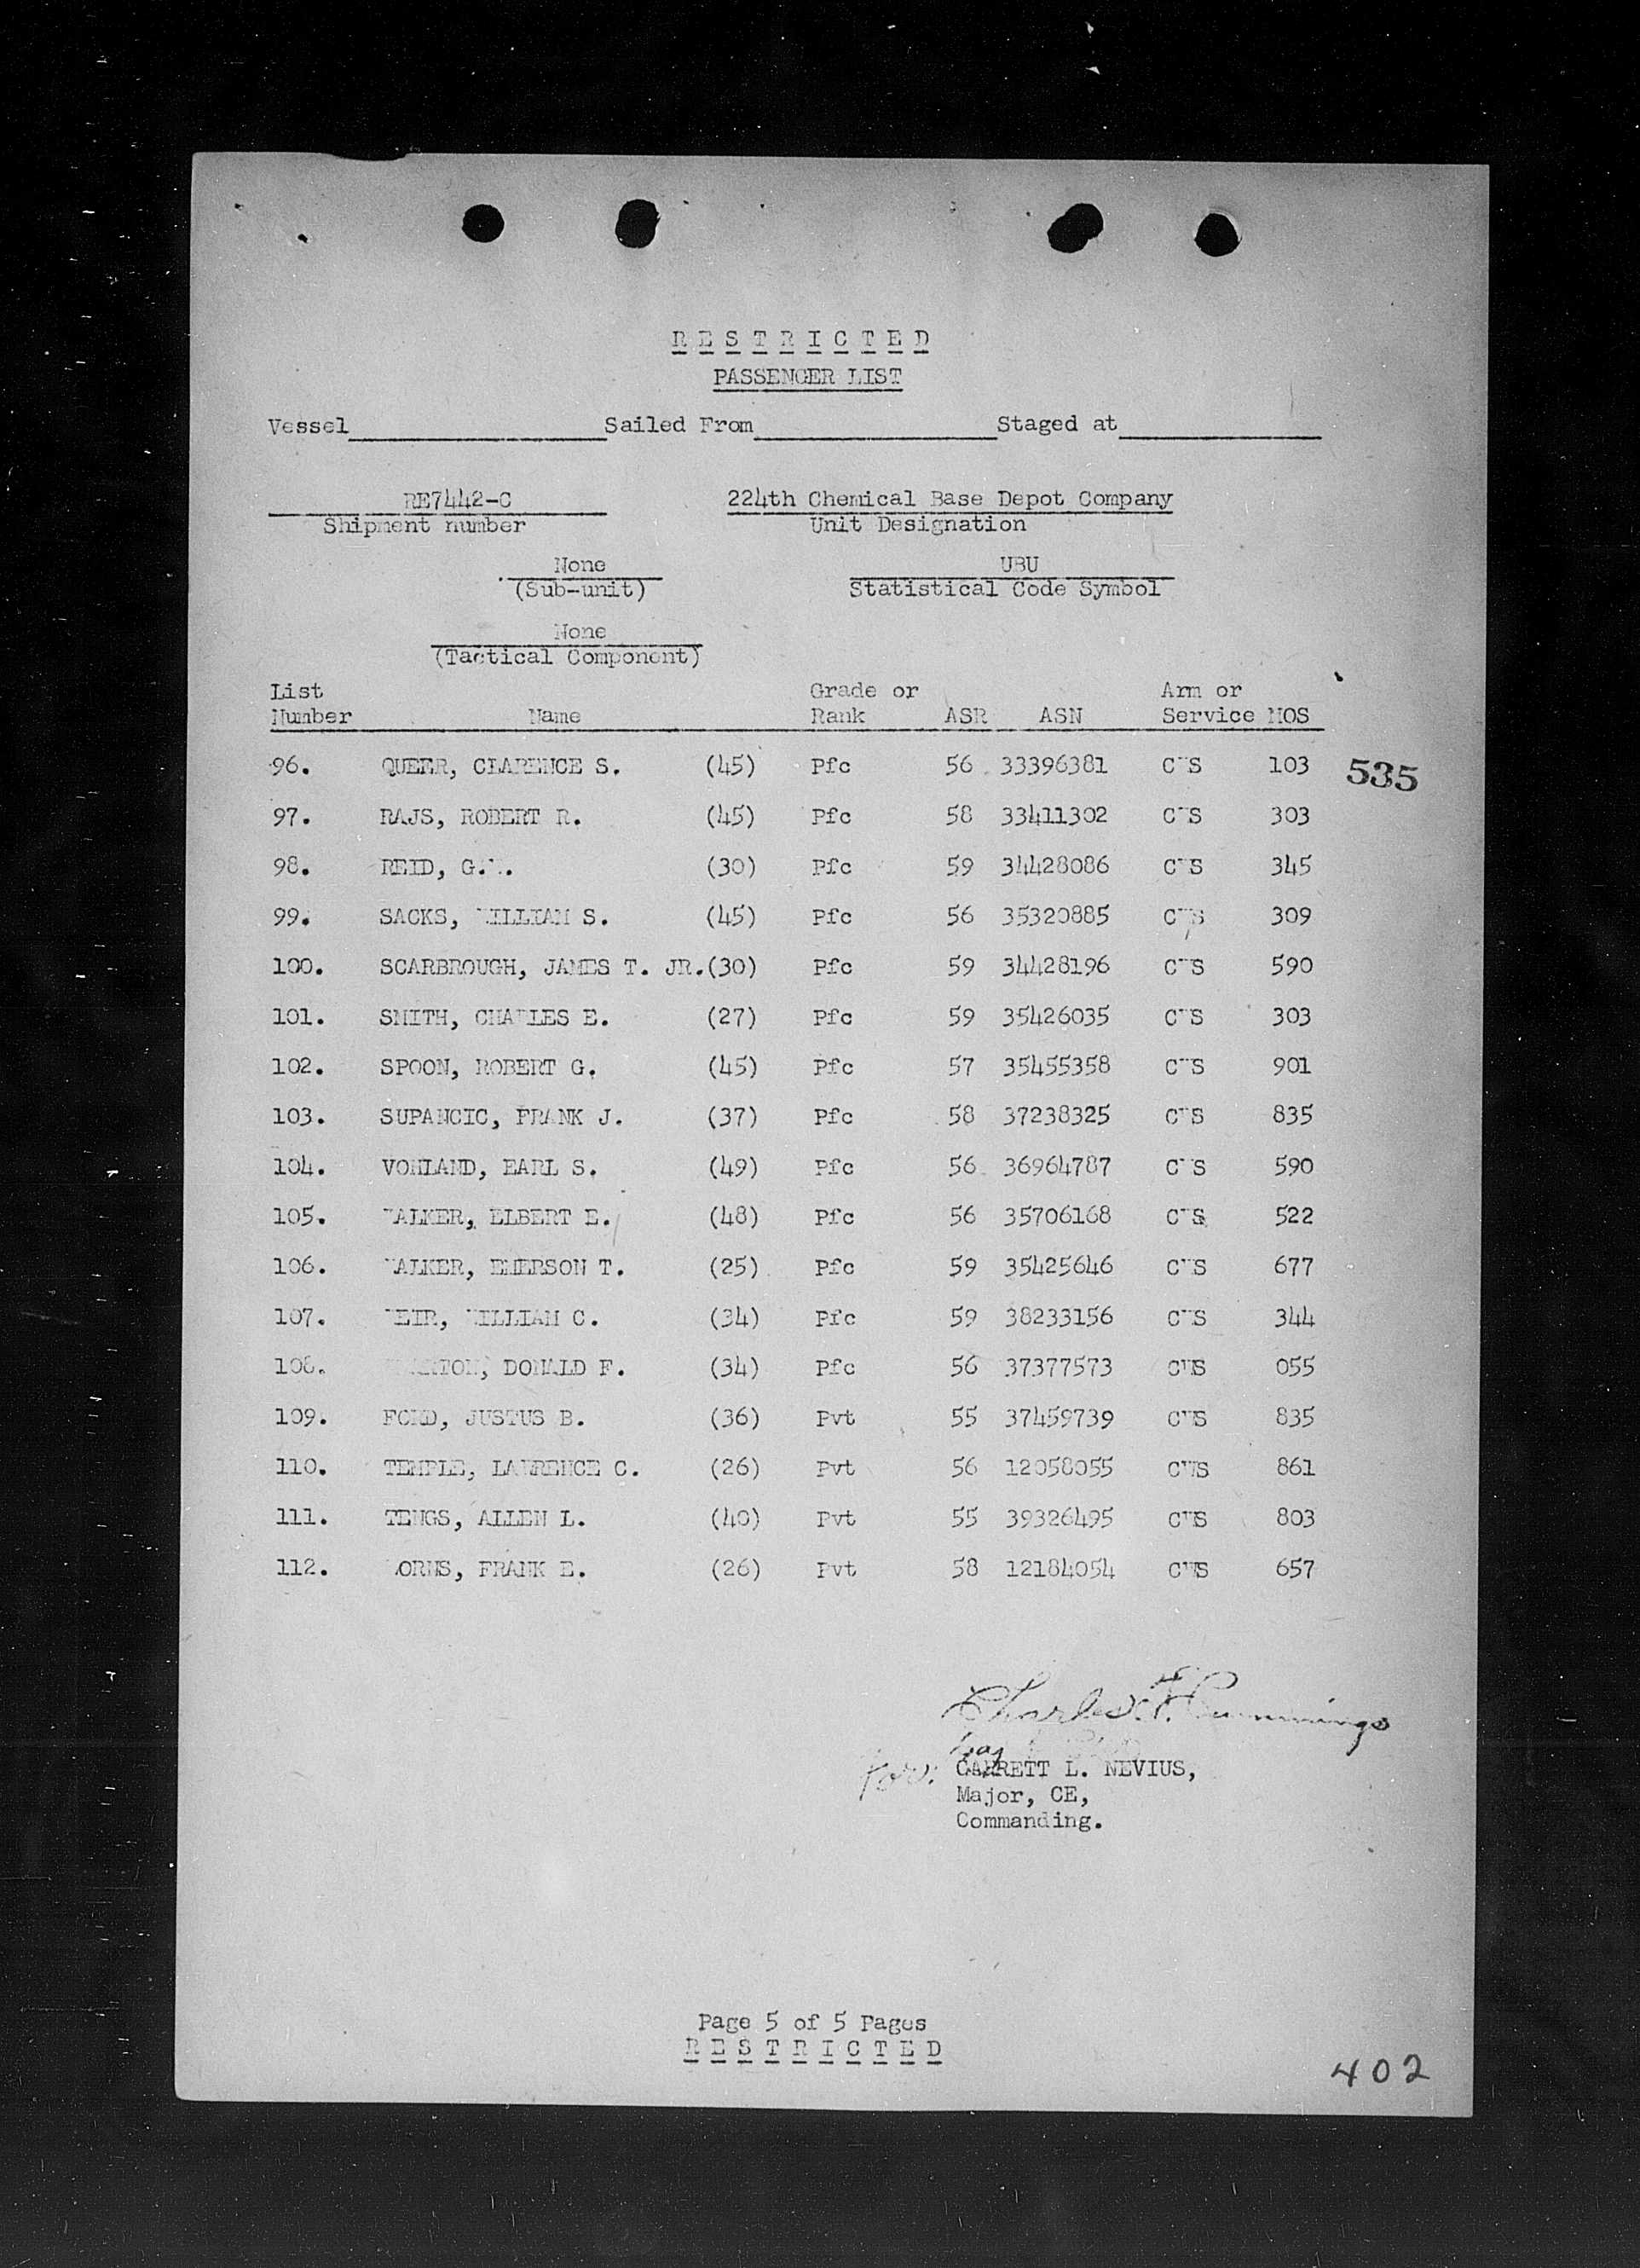 RESTRICTED
PASSENGER LIST
Vessel Sailed From Staged at
RE7442-C 224th Chemical Base Depot Company
Shipment number Unit Designation
None UBU
(Sub-unit) Statistical Code Symbol
None
(Tactical Component)
List Grade or Arm or
Number Name Rank ASR ASN Service MOS
96. QUEER, CLARENCE S. (45) Pfc 56 33396381 CWS 103 535
97. RAJS, ROBERT R. (45) Pfc 58 33411302 CWS 303
98. REID, (30) Pfc 59 34428086 CWS 345
99. SACKS, WILLIAM S. (45) Pfc 56 35320885 CWS 309
100. SCARBROUGH, JAMES T. JR.(30) Pfc 59 34428196 CWS 590
101. SMITH, CHARLES E. (27) Pfc 59 35426035 CWS 303
102. SPOON, ROBERT G. (45) Pfc 57 35455358 CWS 901
103. SUPANCIC, FRANK J. (37) Pfc 58 37238325 CWS 835
104. VOHLAND, EARL S. (49) Pfc 56 36964787 CWS 590
105. WALKER, ELBERT E. (48) Pfc 56 35706168 CWS 522
106. WALKER, EMERSON T. (25) Pfc 59 35425646 CWS 677
107. WEIR, WILLIAM C. (34) Pfc 59 38233156 CWS 344
108. DONALD F. (34) Pfc 56 37377573 CWS 055
109. FORD, JUSTUS B. (36) Pvt 55 37459739 CWS 835
110. TEMPLE, LAWRENCE C. (26) Pvt 56 12058055 CWS 861
111. TENGS, ALLEN L. (40) Pvt 55 39326495 CWS 803
112. FRANK E. (26) Pvt 58 12184054 CWS 657
Charles F. Cummings
for: GARRETT L. NEVIUS,
Major, CE,
Commanding.
Page 5 of 5 Pages
RESTRICTED
402